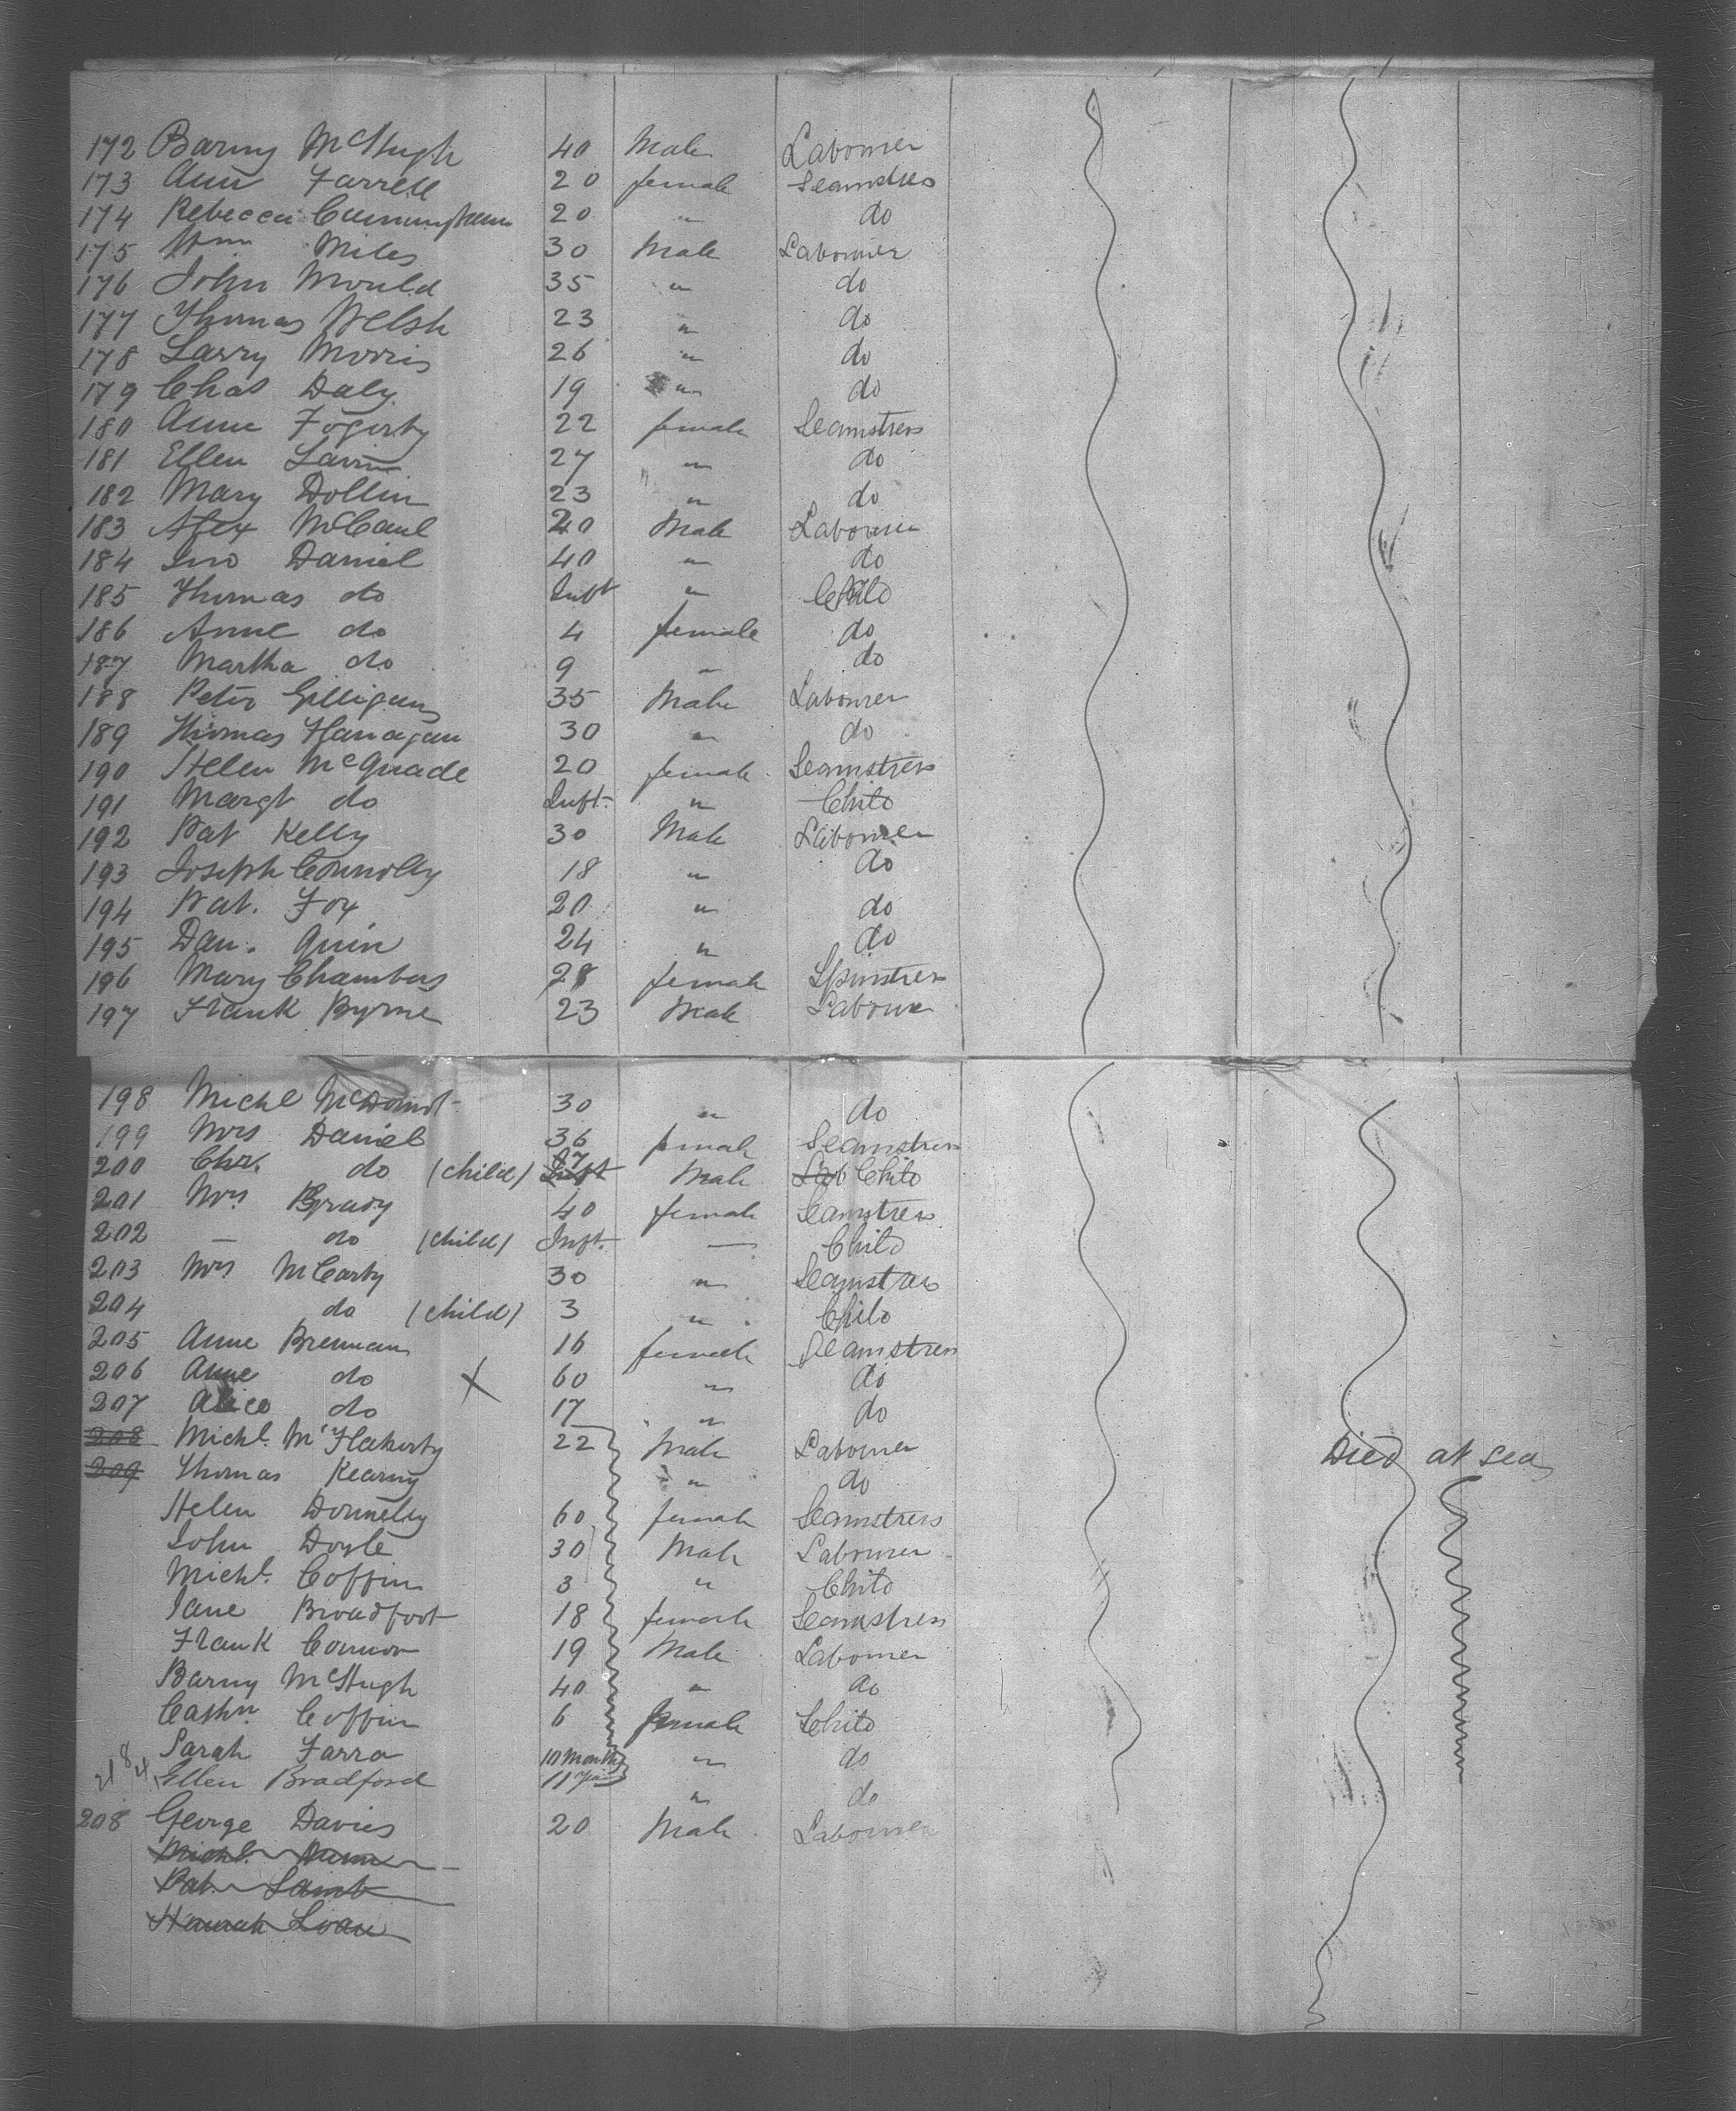 172 Barny McHugh 40 Male Labourer
173 Ann Farrell 20 female Seamstress
174 Rebecca Cunningham 20 " do
175 Wm Miles 30 Male Labourer
176 John Mould 35 " do
177 Thomas Welsh 23 " do
178 Larry Morris 26 " do
179 Chas Daly 19 " do
180 Anne Fogerty 22 female Seamstress
181 Ellen 27 " do
182 Mary Dollin 23 " do
183 Alex McCaul 20 Male Labourer
184 Jno Daniel 40 " do
185 Thomas do Inft " Child
186 Anne do 4 female do
187 Martha do 9 " do
188 Peter Gilligan 35 Male Labourer
189 Thomas Flanagan 30 " do
190 Helen McQuade 20 female Seamstress
191 Margt do Inft. " Child
192 Pat Kelly 30 Male Labourer
193 Joseph Connolly 18 " do
194 Pat. Fox 20 " do
195 Dan. Quin 24 " do
196 Mary Chambers 28 female Spinstress
197 Frank Byrne 23 Male Labour
198 Michl 30 " do
199 Mrs Daniel 36 female Seamstress
200 Chr. do (child) Inft Male Lab Child
201 Mrs Brady 40 female Seamstress
202 — do (child) Inft. — Child
203 Mrs McCarty 30 " Seamstress
204 do (child) 3 " Child
205 Anne Brennan 16 female Seamstress
206 Anne do X 60 " do
207 Alice do 17 " do
208 Michl. McFlaherty 22 Male Labourer Died at sea
209 Thomas Kearny " do
Helen Donnelly 60 female Seamstress
John Doyle 30 Male Labourer
Michl. Coffin 3 " Child
Jane Broadfoot 18 female Seamstress
Frank Connor 19 Male Labourer
Barny McHugh 40 " do
Cathn Coffin 6 female Child
Sarah Farra 10 Months " do
Ellen Bradford 11 Years " do
208 George Davies 20 Male Labourer
Michl.
Pat. Lamb
Hannah Loan